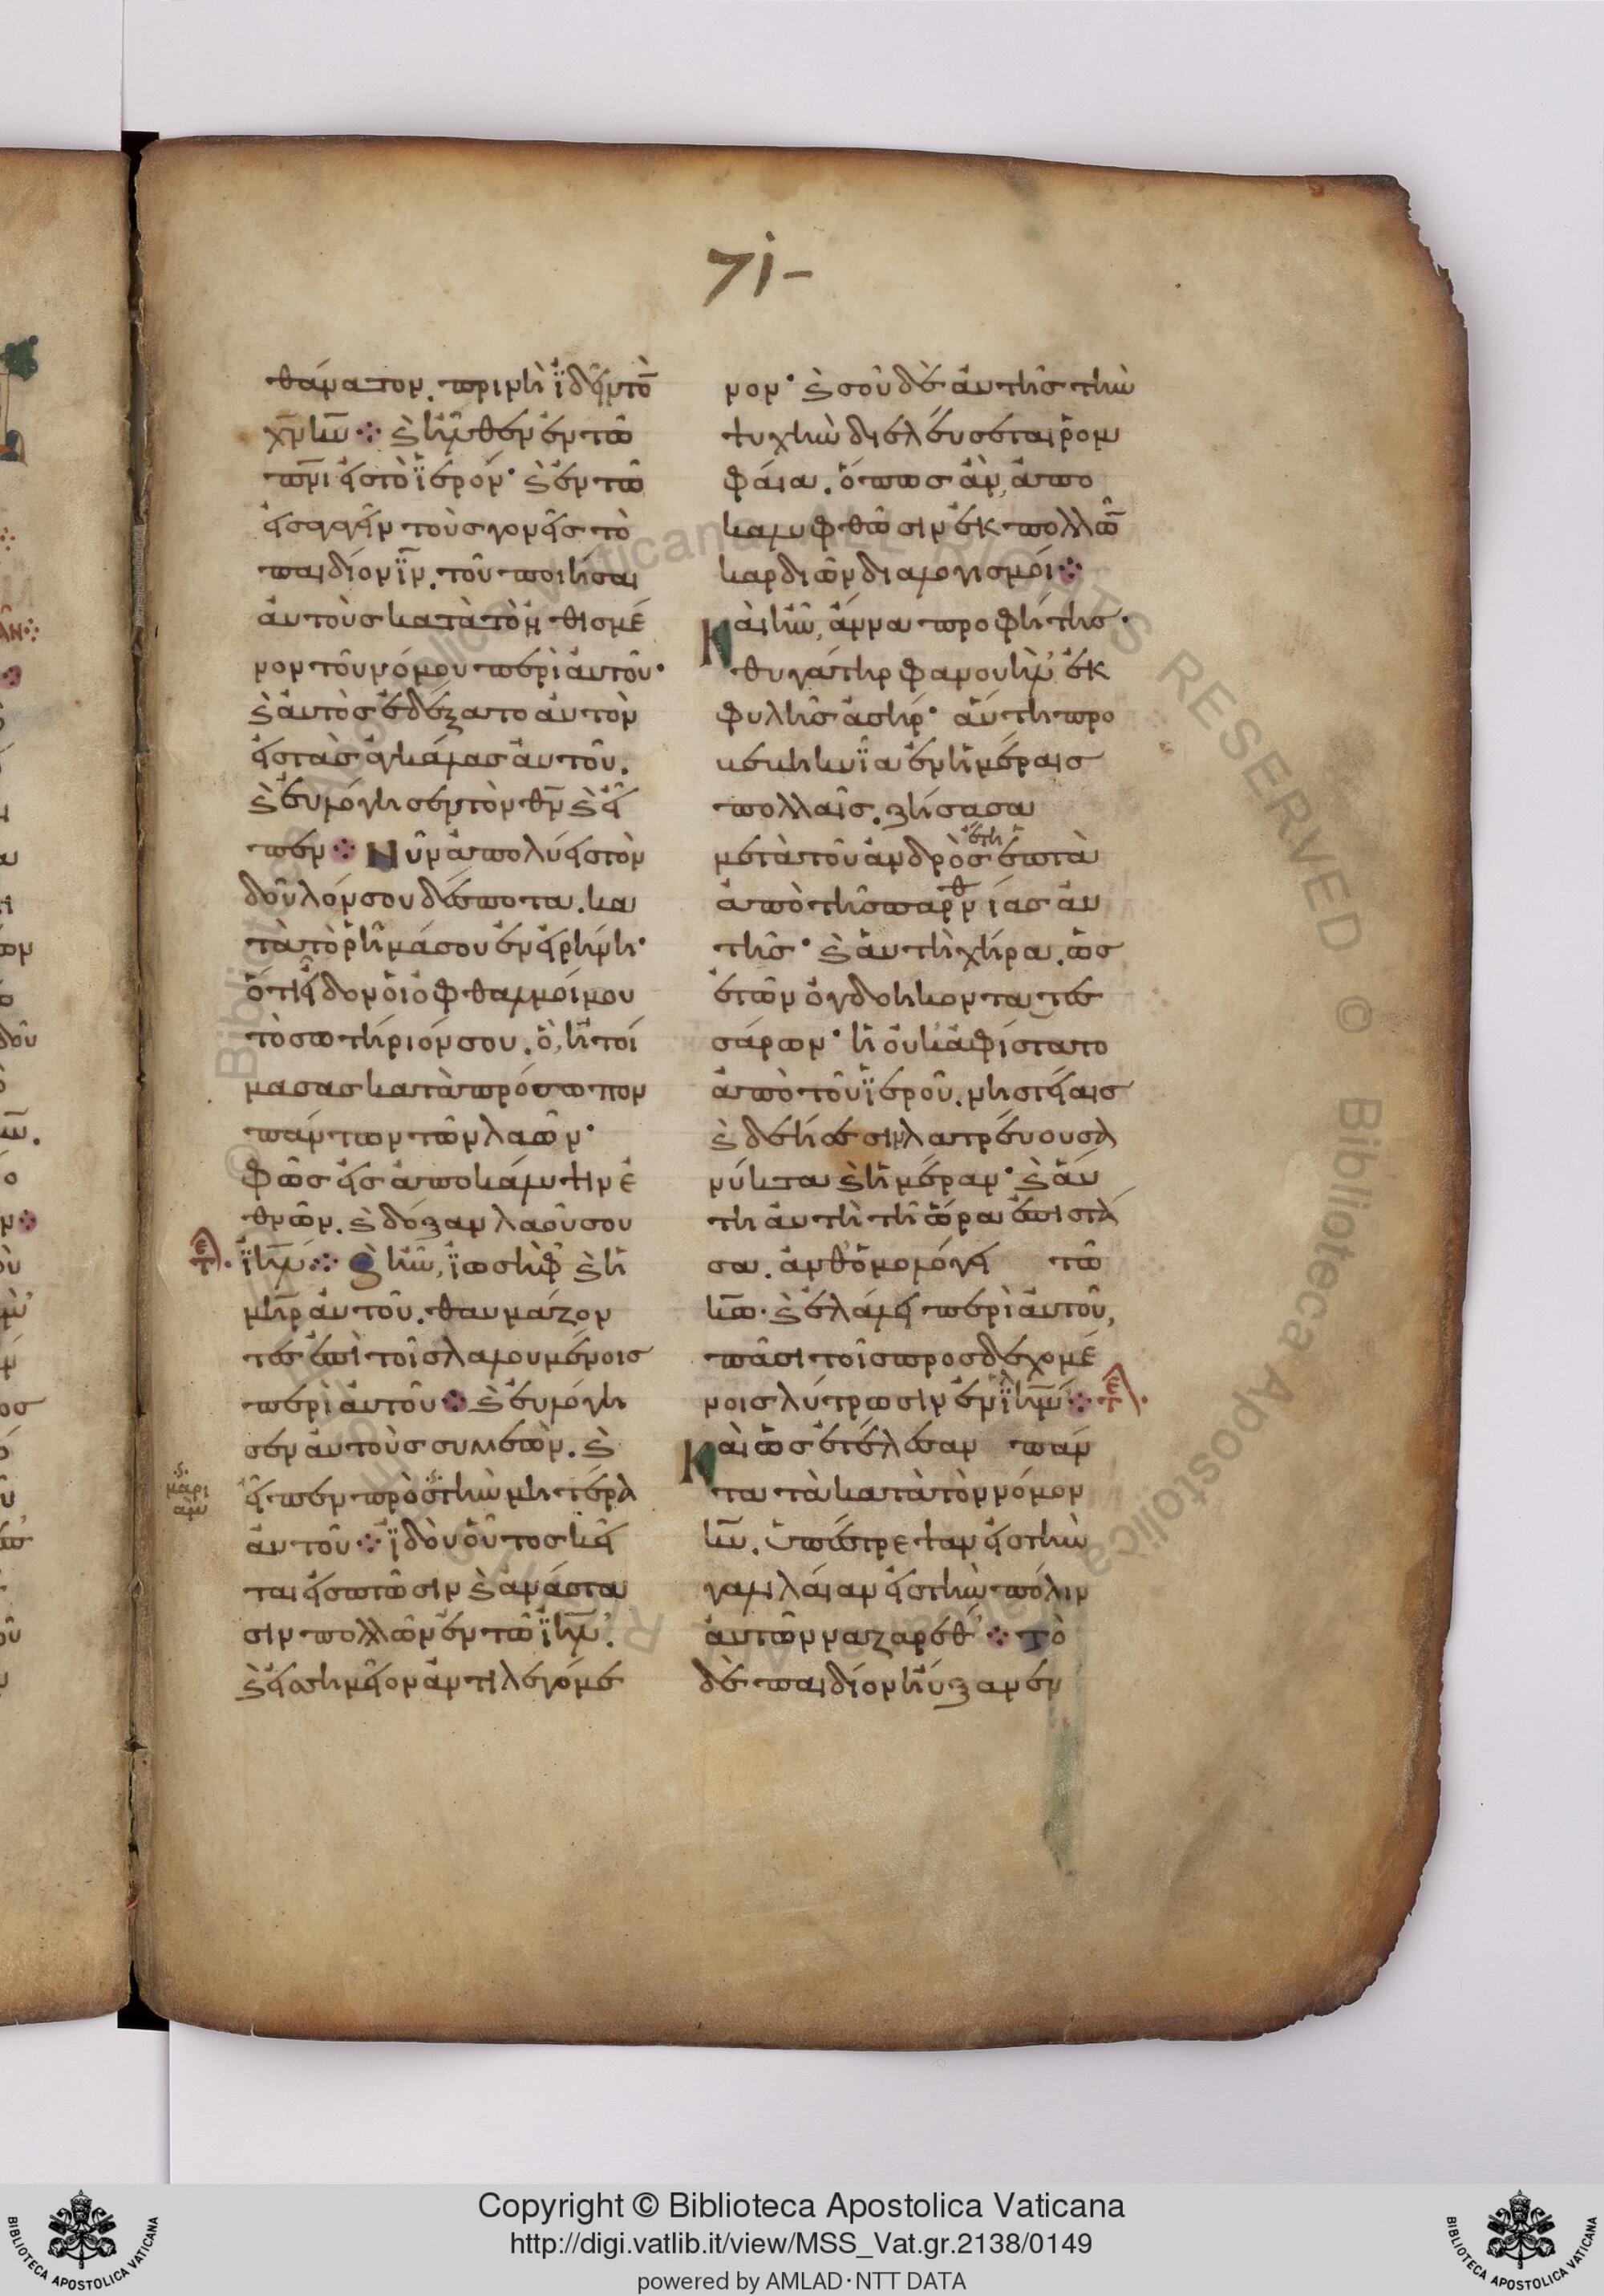 71-
θάνατον. πρινὴ ἴδῃ τὸ̅
χ̅ν κ̅υ ⁘ ϗ ἦλθεν ἐν τῶ
π̅νι εἰς τὸ ἱερόν· ϗ ἐν τῶ
εἰσαγαγεῖν τοὺς γονεῖς τὸ
παιδίον ι̅ν. τοῦ ποιῆσαι
αὐτοὺς κατὰ τὸ εἰθισμέ
νον τοῦ νόμου περὶ αὐτοῦ·
ϗ αὐτὸς ἐδέξατο αὐτὸν
εἰς τὰς ἀγκάλας αὐτοῦ.
ϗ εὐλόγησεν τὸν θ̅ν ϗ εἶ
πεν ⁘ Νῦν ἀπολύεις τὸν
δοῦλόν σου δέσποτα. κα
τὰ τὸ ῥῆμά σου ἐν εἰρήνη·
ὅτι εἶδον οἱ ὀφθαλμοί μου
τὸ σωτήριόν σου. ὃ, ἡτοί
μασας κατὰ πρόσωπον
πάντων τῶν λαῶν·
φῶς εἰς ἀποκάλυψιν ἐ
θνῶν. ϗ δόξαν λαοῦ σου
ι̅η̅λ ⁘ ϗ ἦν, ἰωσὴφ ϗ ἡ
μ̅η̅ρ αὐτοῦ. θαυμάζον
τες ἐπὶ τοῖς λαλουμένοις
περὶ αὐτοῦ ⁘ ϗ εὐλόγη
σεν αὐτοὺς συμεὼν. ϗ
εἶπεν πρὸς τὴν μητέρα
μαρι
ὰμ
αὐτοῦ ⁘ ἰδοὺ οὗτος κεῖ
ται εἰς πτῶσιν ϗ ἀνάστα
σιν πολλῶν ἐν τῶ ι̅η̅λ.
ϗ εἰς σημεῖον ἀντιλεγόμε
νον· ϗ σοῦ δὲ αὐτῆς τὴν
ψυχὴν διελεύσεται ῥομ
φαία. ὅπως ἂν, ἀπο
καλυφθῶσιν ἐκ πολλῶ̅
καρδιῶν διαλογισμοί ⁘
Καὶ ἦν, ἄννα προφήτης·
θυγάτηρ φανουὴλ ἐκ
φυλῆς ἀσήρ· αὕτη προ
βεβηκυῖα ἐν ἡμέραις
πολλαῖς. ζήσασα
ἔτη
μετὰ τοῦ ἀνδρὸς ἑπτὰ
ἀπὸ τῆς παρθνίας αὐ
τῆς· ϗ αὐτὴ χήρα. ὡς
ἐτῶν ὀγδοήκοντα τεσ
σάρων· ἣ οὐκ ἀφίστατο
ἀπὸ τοῦ ἱεροῦ. νηστείαις
ϗ δεήσεσιν λατρεύουσα
νύκτα ϗ ἡμέραν· ϗ αὕ
τη αὐτὴ τῆ ὥρα ἐπιστᾶ
σα. ἀνθομολόγει τῶ
κ̅ω· ϗ ἐλάλει περὶ αὐτοῦ,
πᾶσι τοῖς προσδεχομέ
νοις λύτρωσιν ἐν ι̅λ̅η̅μ ⁘
Καὶ ὡς ἐτέλεσαν παν
τα τὰ κατὰ τὸν νόμον
κ̅υ. ὑπέστρεψαν εἰς τὴν
γαλιλαίαν εἰς τὴν πόλιν
αὐτῶν ναζαρέθ ⁘ τὸ
δὲ παιδίον ηὔξανεν
Copyright © Biblioteca Apostolica Vaticana
http://digi.vatlib.it/view/MSS_Vat.gr.2138/0149
powered by AMLAD·NTT DATA
BIBLIOTECA APOSTOLICA VATICANA
BIBLIOTECA APOSTOLICA VATICANA